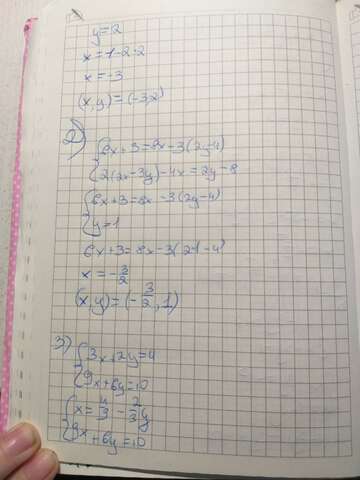 y=2
x=1-2·2
x=-3
(x,y)=(-3,2)
2)
{6x+3=8x-3(2y-4)
2(2x-3y)-4x=2y-8
{6x+3=8x-3(2y-4)
y=1
6x+3=8x-3(2·1-4)
x=-3/2
(x,y)=(-3/2,1)
3) {3x+2y=4
9x+6y=10
{x=4/3-2/3y
9x+6y=10